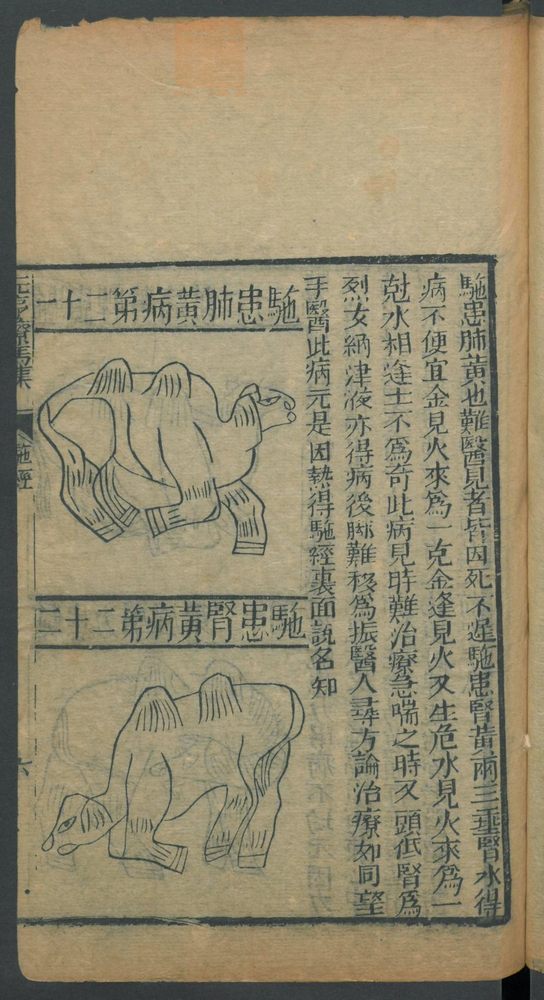 駞患肺黃也難醫見者皆因死不遲駞患腎黃兩三垂腎水得
病不便宜金見火來爲一克金逢見火又生危水見火來爲一
尅水相逢土不爲奇此病見時難治療急喘之時又頭低腎爲
烈女納津液亦得病後脚難移爲振醫人尋方論治療如同望
手醫此病元是因熱得駞經裏面説名知
駞患肺黃病第二十一
駞患腎黃病第二十二
元亨療馬集
駞經
六